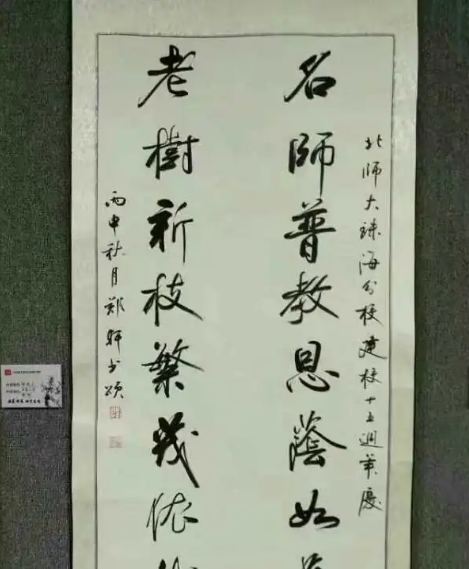 北师大珠海分校建校十五週年慶
名師普教恩蔭如
老樹新枝繁茂依
丙申秋月郑軒书颂